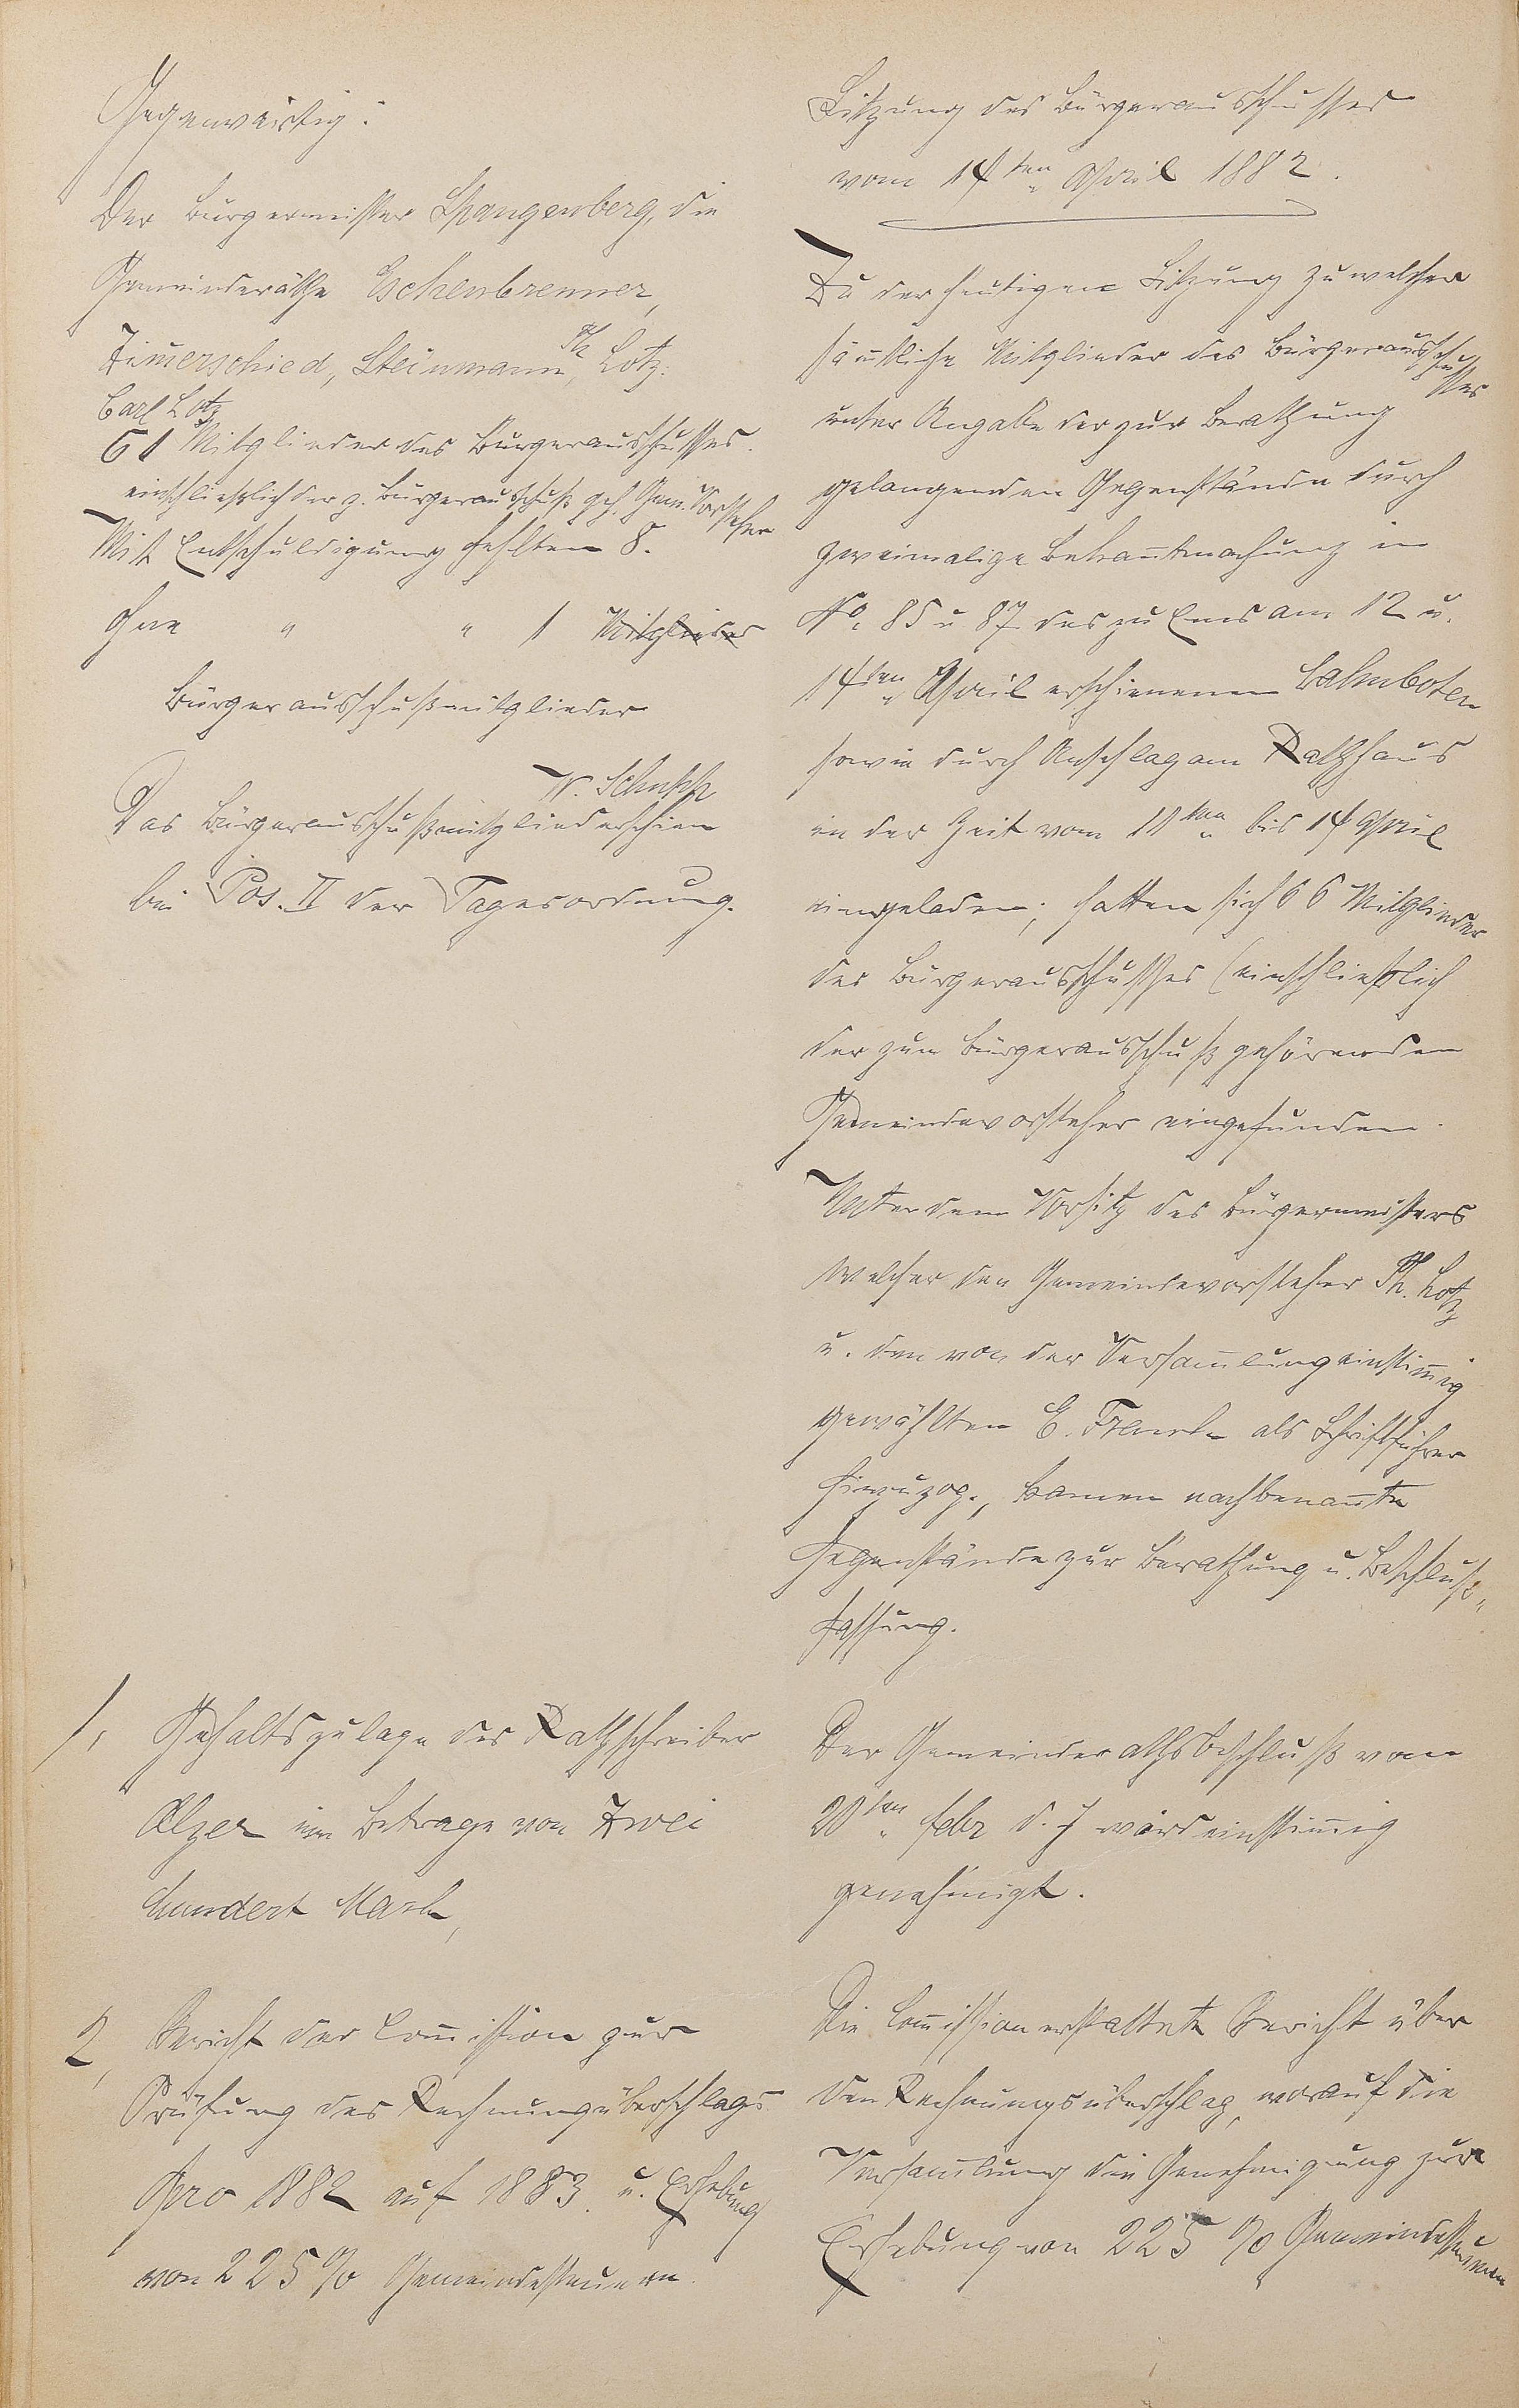 Gegenwärtig:
Der Bürgermeister Spangenberg, die
Gemeinderäthe Eschenbrenner,
Zim̄erschied, Steinmann, Ph Lotz.
Carl Lotz
61 Mitglieder des Bürgerausschusses.
einschließlich der z. Bürgerausschuß geh. Gem. Vorsteher
Mit Entschuldigung fehlten 8.
Ohne " " 1 Mitglieder
Bürgerausschußmitglieder
W. Schupp
Das Bürgerausschußmitglied erschien
bei Pos. II der Tagesordnung.
Sitzung des Bürgerausschusses
vom 14ten April 1882.
Zu der heutigen Sitzung zu welcher
säm̄tliche Mitglieder des Bürgerausschusses
unter Angabe der zur Berathung
gelangenden Gegenstände durch
zweimalige Bekan̄tmachung in
No. 85 u 87 des zu Ems am 12 u.
14ten April erschienenen Lahnboten
sowie durch Anschlag am Rathhaus
in der Zeit vom 11ten bis 14 April
eingeladen, hatten sich 66 Mitglieder
des Bürgerausschusses (einschließlich
der zum Bürgerausschuß gehörenden
Gemeindevorsteher eingefunden.
Unter dem Vorsitz des Bürgermeisters
welcher den Gemeindevorsteher Ph. Lotz
u. den von der Versam̄lung einstim̄ig
gewählten E. Franke als Schriftführer
hinzuzog, kamen nachbenan̄te
Gegenstände zur Berathung u. Beschluß-
fassung.
1, Gehaltszulage des Rathschreiber
Elzer im Betrage von Zwei
hundert Mark,
Der Gemeinderathsbeschluß vom
20ten Febr d. J wird einstim̄ig
genehmigt.
2, Bericht der Com̄ission zur
Prüfung des Rechnungsüberschlags
pro 1882 auf 1883. u. Erhebung
von 225% Gemeindesteuern.
Die Com̄ission erstattete Bericht über
den Rechnungsüberschlag, worauf die
Versam̄lung die Genehmigung zur
Erhebung von 225 % Gemeindesteuern